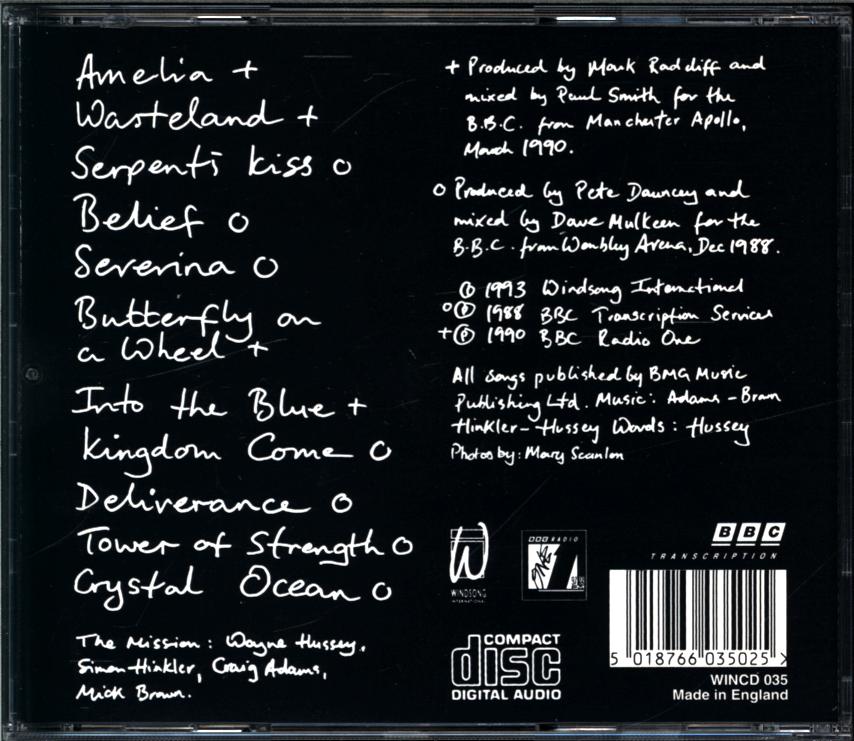 Amelia +
Wasteland +
Serpents kiss o
Belief o
Severina o
Butterfly on
a Wheel +
Into the Blue +
Kingdom Come o
Deliverance o
Tower of Strength o
Crystal Ocean o
The Mission : Wayne Hussey,
Simon Hinkler, Craig Adams,
Mick Brown.
+ Produced by Mark Radcliff and
mixed by Paul Smith for the
B.B.C. from Manchester Apollo,
March 1990.
o Produced by Pete Dauncey and
mixed by Dave Mulkeen for the
B.B.C. from Wembley Arena, Dec 1988.
© 1993 Windsong International
o℗ 1988 BBC Transcription Services
+℗ 1990 BBC Radio One
All songs published by BMG Music
Publishing Ltd. Music: Adams - Brown
Hinkler - Hussey Words : Hussey
Photos by: Mary Scanlon
W
WINDSONG
INTERNATIONAL
BBC RADIO
1
BBC
TRANSCRIPTION
COMPACT
disc
DIGITAL AUDIO
5 018766 035025 >
WINCD 035
Made in England